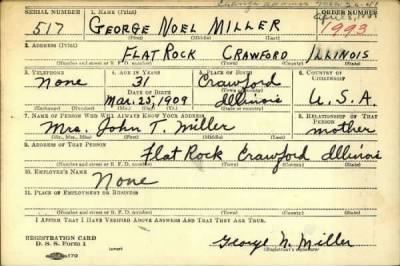 SERIAL NUMBER 1. NAME (Print) ORDER NUMBER
517 GEORGE NOEL MILLER 1993
(First) (Middle) (Last)
2. ADDRESS (Print)
FLAT ROCK CRAWFORD ILLINOIS
(Number and street or R. F. D. number) (Town) (County) (State)
3. TELEPHONE 4. AGE IN YEARS 5. PLACE OF BIRTH 6. COUNTRY OF CITIZENSHIP
None 31 Crawford
DATE OF BIRTH
Mar. 25, 1909 Illinois U.S.A.
(Exchange) (No.) (Mo.) (Day) (Yr.) (State or country)
7. NAME OF PERSON WHO WILL ALWAYS KNOW YOUR ADDRESS 8. RELATIONSHIP OF THAT PERSON
Mrs. John T. Miller mother
(Mr., Mrs., Miss) (First) (Middle) (Last)
9. ADDRESS OF THAT PERSON
Flat Rock Crawford Illinois
(Number and street or R. F. D. number) (Town) (County) (State)
10. EMPLOYER'S NAME
None
11. PLACE OF EMPLOYMENT OR BUSINESS
(Number and street or R. F. D. number) (Town) (County) (State)
I AFFIRM THAT I HAVE VERIFIED ABOVE ANSWERS AND THAT THEY ARE TRUE.
REGISTRATION CARD
D. S. S. Form 1 George N. Miller
(Registrant's signature)